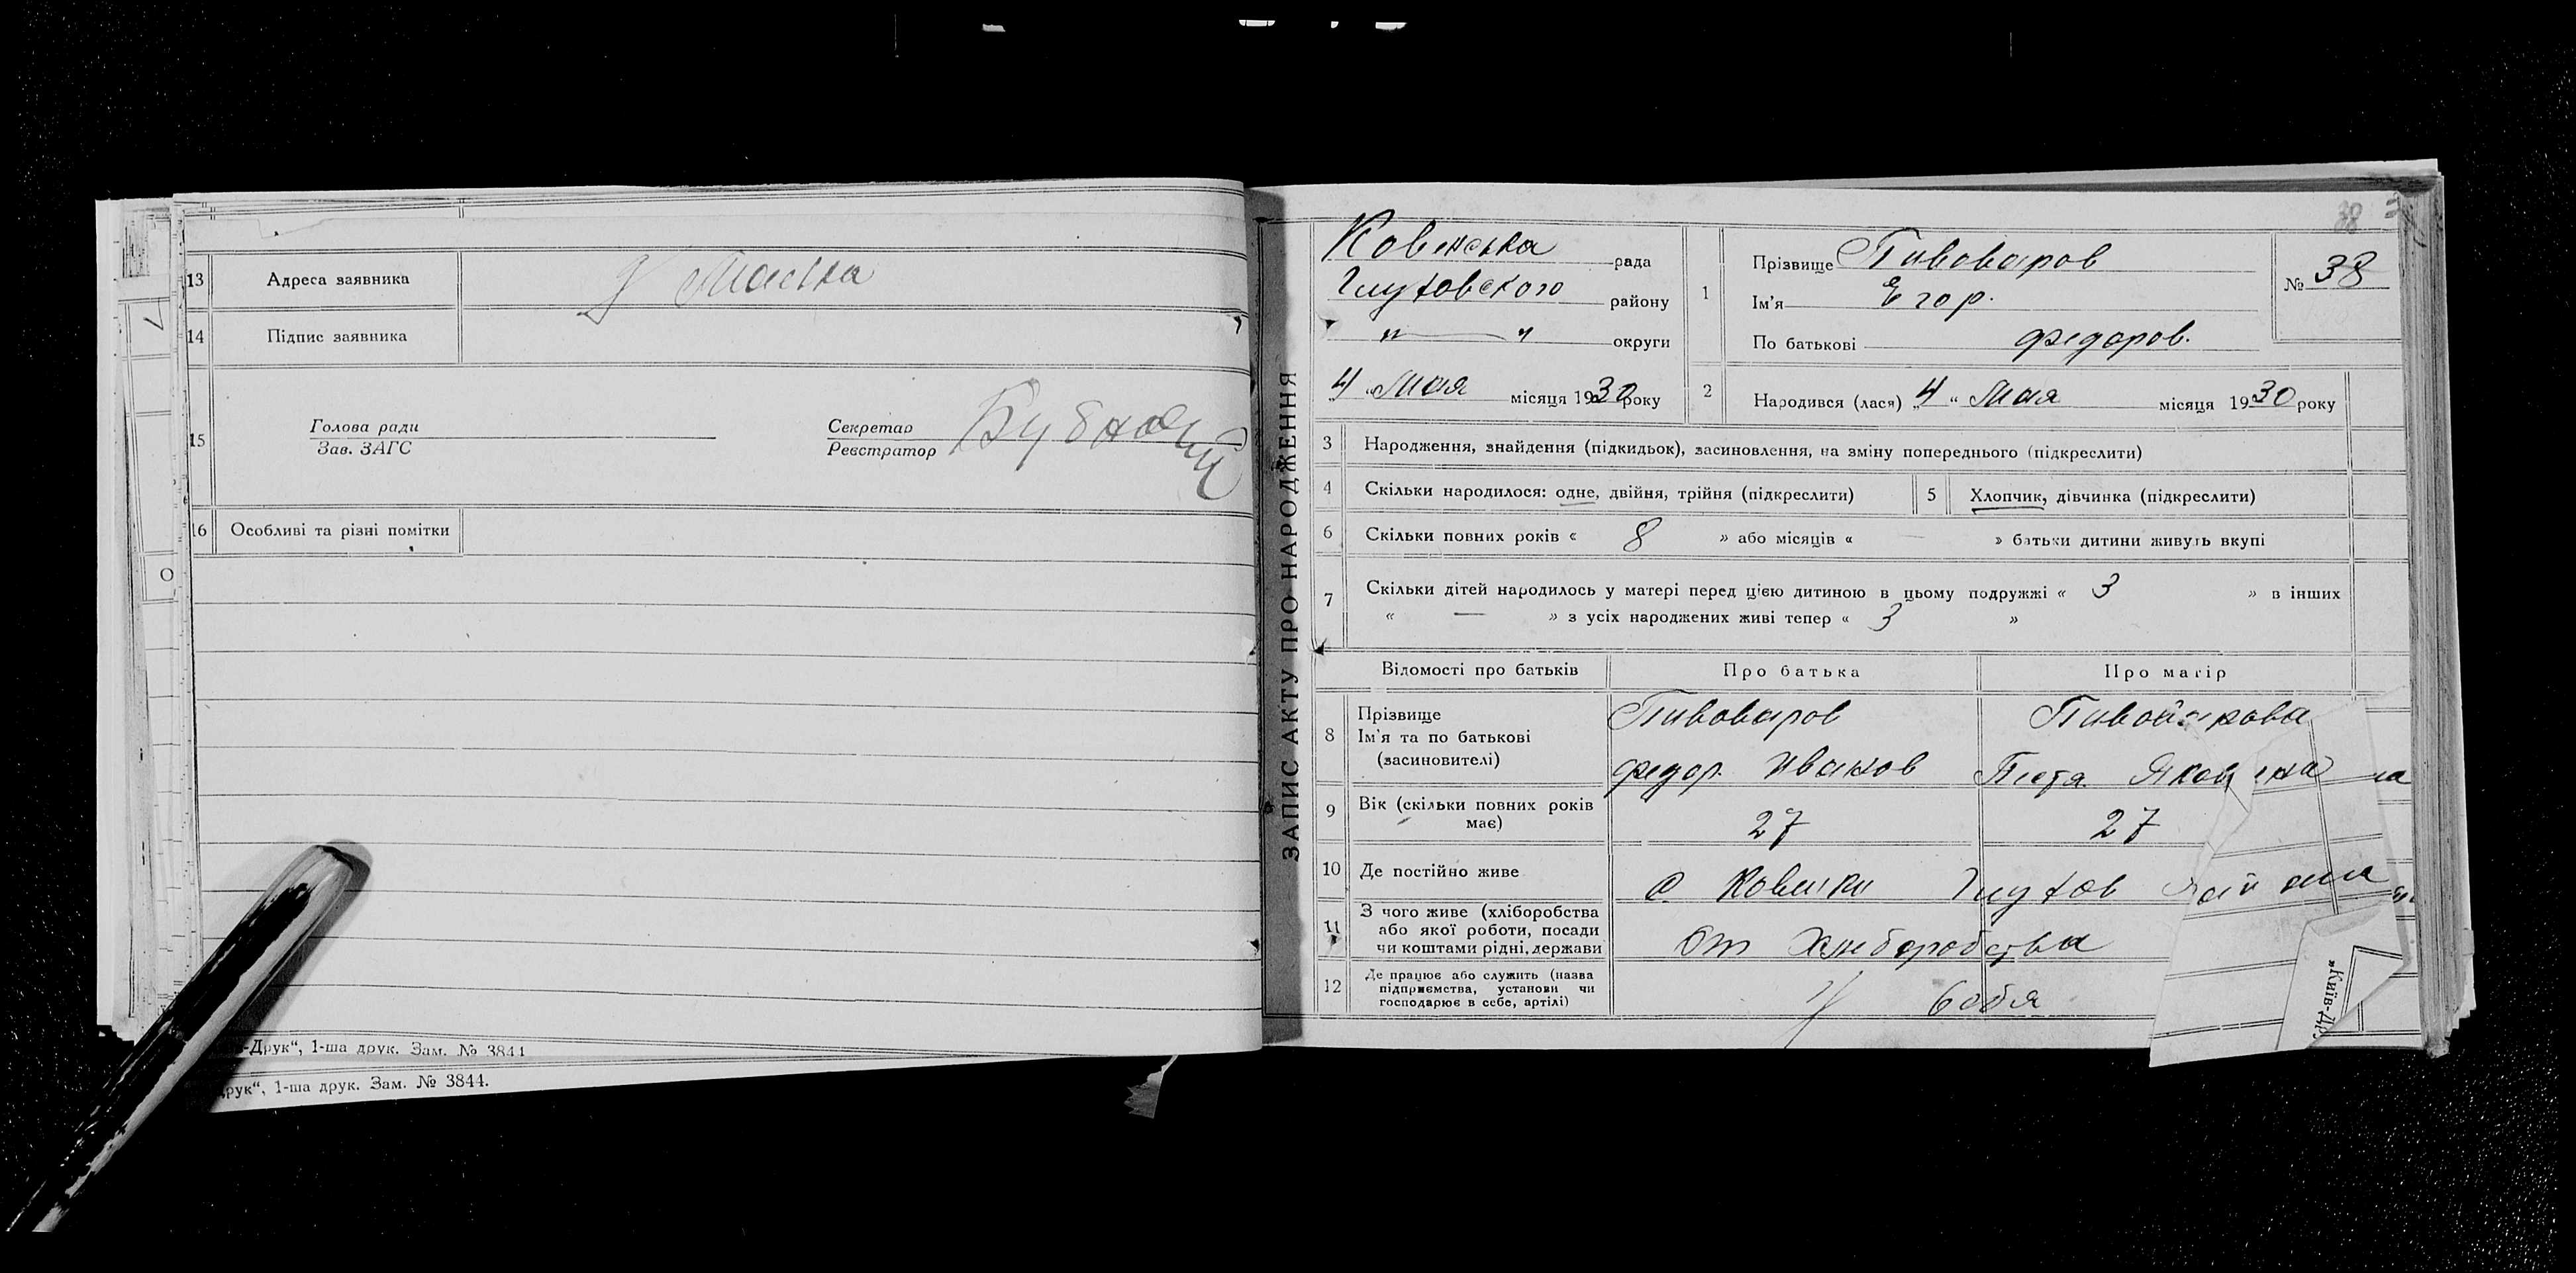 13 Адреса заявника
14 Підпис заявника
15 Голова ради
Зав. ЗАГС
Секретар
Реєстратор
16 Особливі та різні помітки
-Друк“, 1-ша друк. Зам. № 3844
рук“, 1-ша друк. Зам. № 3844.
ЗАПИС АКТУ ПРО НАРОДЖЕННЯ
Ковенська рада
Глуховского району
" — " округи
4 „ Мая місяця 1930 року
1 Прізвище Пивоваров
Ім'я Егор.
По батькові Федоров.
№ 38
2 Народився (лася) „4“ Мая місяця 1930 року
3 Народження, знайдення (підкидьок), засиновлення, на зміну попереднього (підкреслити)
4 Скільки народилося: одне, двійня, трійня (підкреслити) 5 Хлопчик, дівчинка (підкреслити)
6 Скільки повних років « 8 » або місяців « — » батьки дитини живуть вкупі
7 Скільки дітей народилось у матері перед цією дитиною в цьому подружжі « 3 » в інших
« — » з усіх народжених живі тепер « 3 »
Відомості про батьків Про батька Про матір
8 Прізвище
Ім'я та по батькові
(засиновителі)
Пивоваров Пивоварова
Федор. Иванов
9 Вік (скільки повних років
має)
27 27
10 Де постійно живе
с. Ковенки Глухов
11 З чого живе (хліборобства
або якої роботи, посади
чи коштами рідні, держави
От Хлиборобства
12 Де працює або служить (назва
підприємства, установи чи
господарює в себе, артілі)
У себя
„Київ-Др